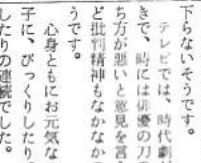 下らないそうです。
テレビでは、時代劇
きで、時には俳優の刀
ち方が悪いと意見を言
ど批判精神もなかなか
うです。
心身ともにお元気な
子に、びっくりしたり
したりの連続でした。